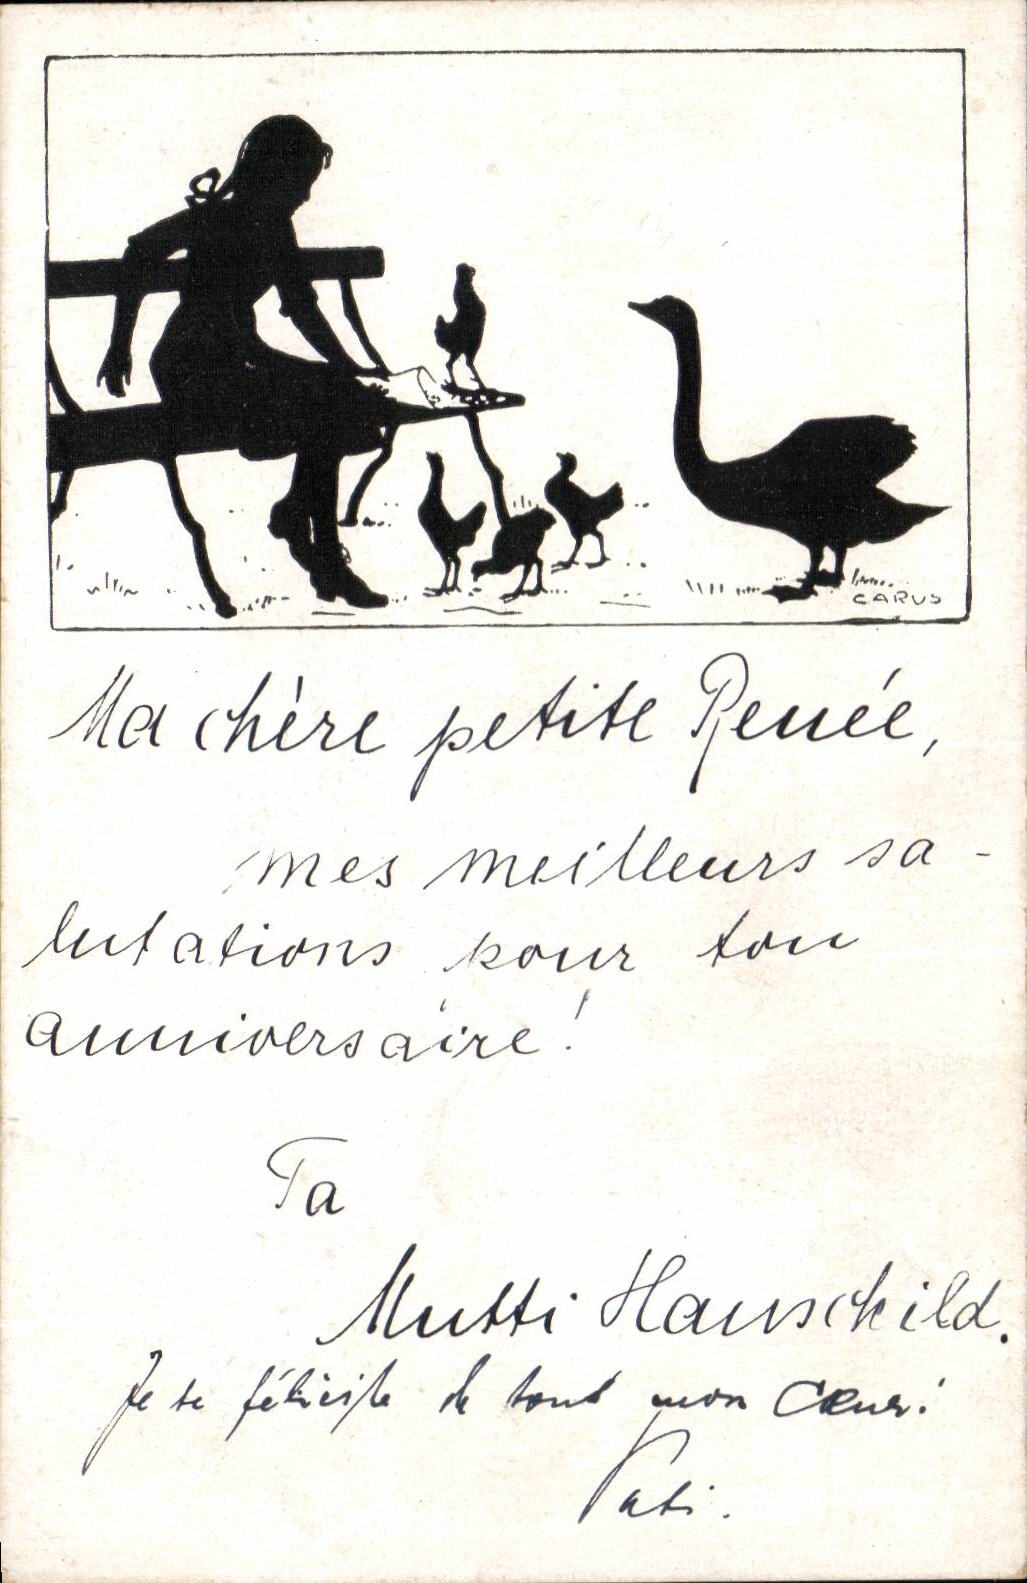 CARUS
Ma chère petite Renée,
mes meilleurs sa-
lutations pour ton
anniversaire!
Ta
Mutti Hauschild.
Je te félicite de tout mon Cœur!
Pati.